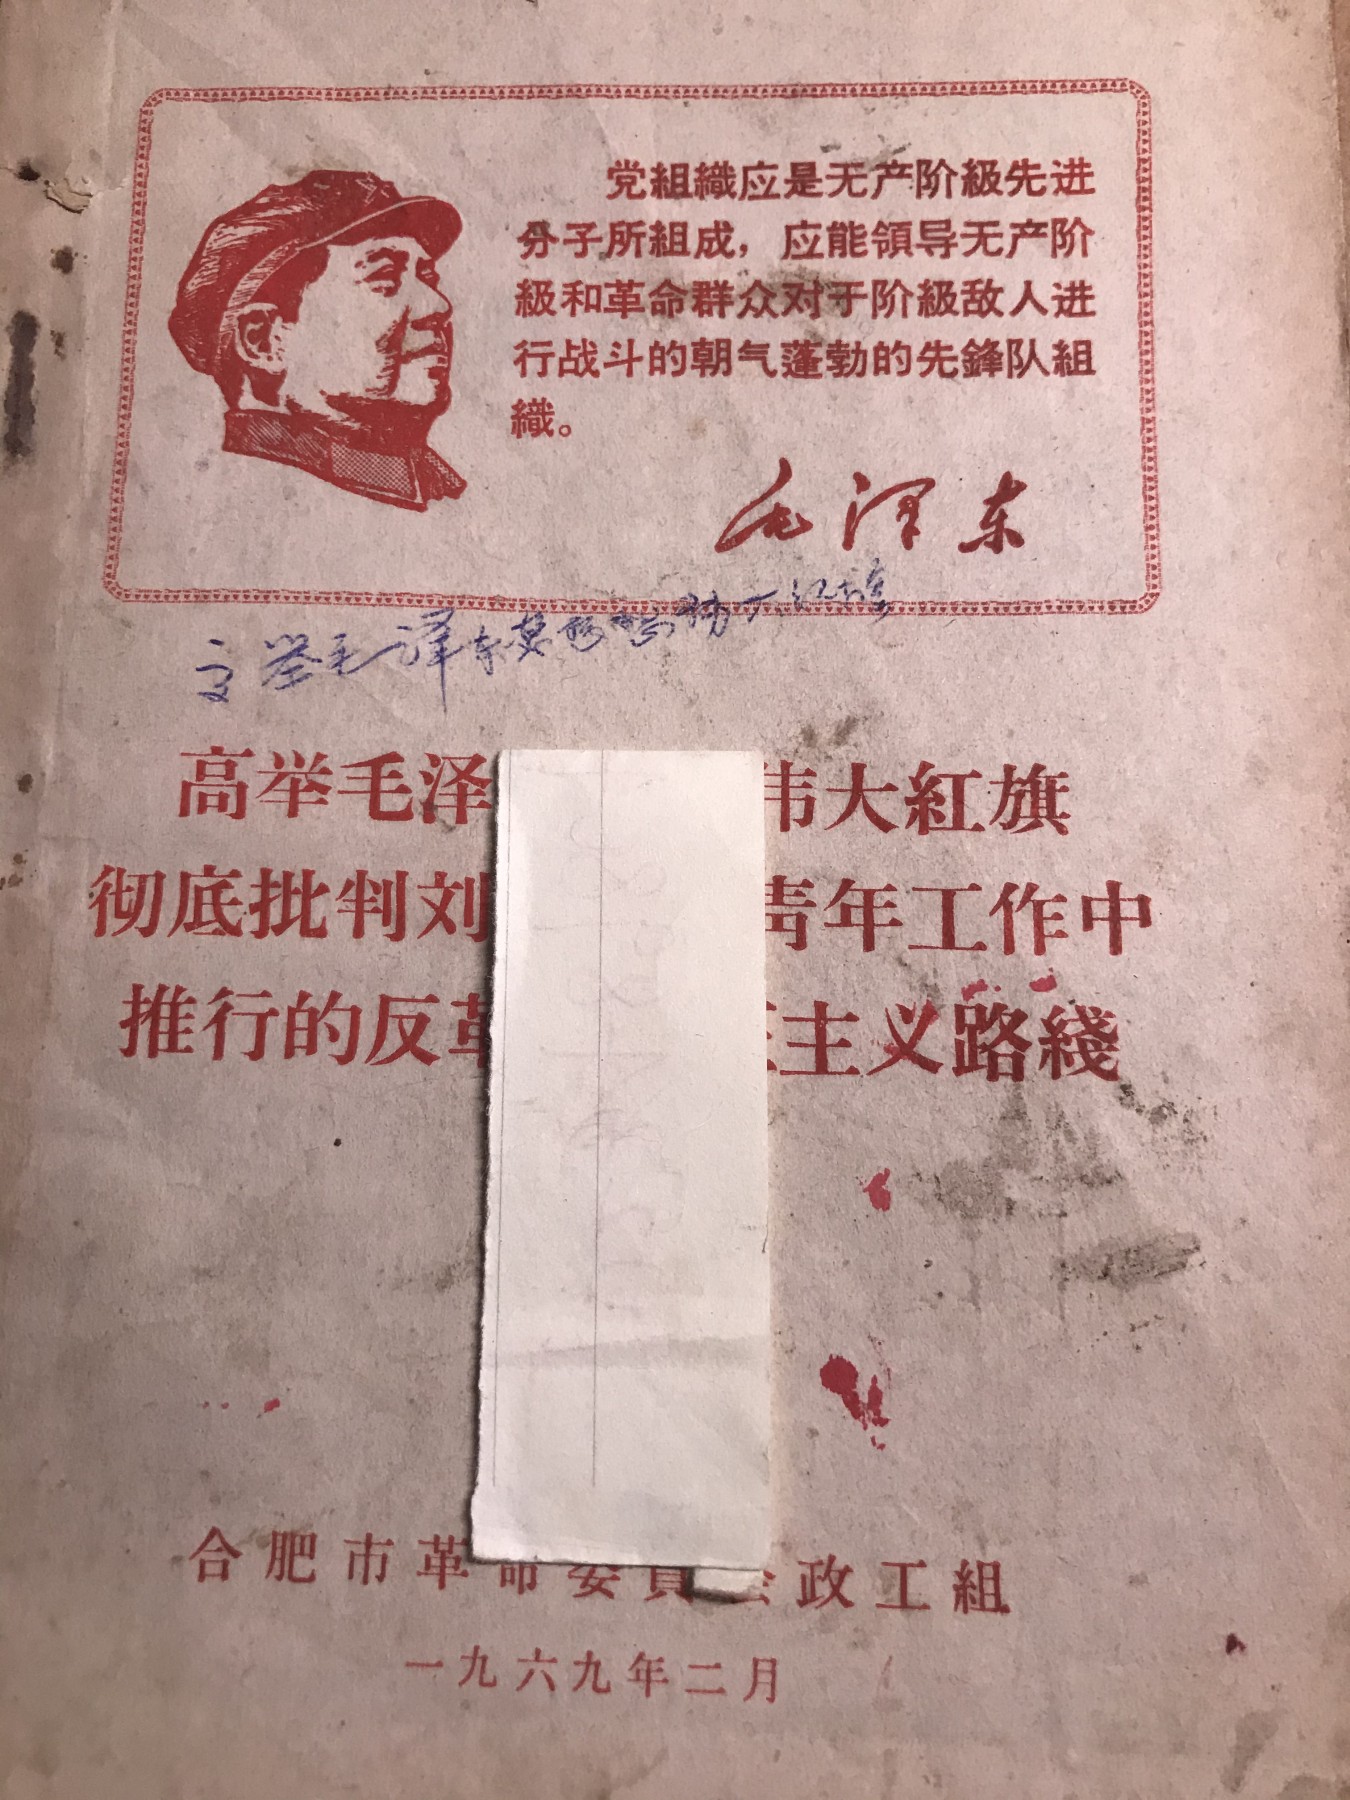 党組織应是无产阶級先进
分子所組成，应能領导无产阶
級和革命群众对于阶級敌人进
行战斗的朝气蓬勃的先鋒队組
織。
毛泽东
高举毛泽 伟大紅旗
彻底批判刘 青年工作中
推行的反革 主义路綫
合肥市革命委員会政工組
一九六九年二月